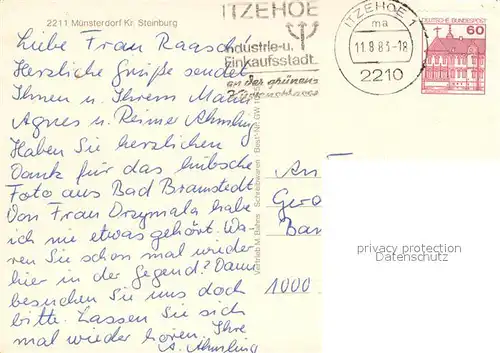 2211 Münsterdorf Kr. Steinburg
ITZEHOE
Industrie-u.
Einkaufsstadt
an der grünen
ITZEHOE 1
ma
11.8.83-18
2210
DEUTSCHE BUNDESPOST
60
Liebe Frau Raasch!
Herzliche Grüße senden
Ihnen u. Ihrem Mann
Agnes u. Reimer Ahmling
Haben Sie herzlichen
Dank für das hübsche
Foto aus Bad Bramstedt
Von Frau Drzymala habe
ich nie etwas gehört. Wa-
ren Sie schon mal wieder
hier in der Gegend? Dann
besuchen Sie uns doch
bitte. Lassen Sie sich
mal wieder hören. Ihre
A. Ahmling
Vertrieb M. Bahns Schreibwaren Best.-Nr. GW
An
1000
privacy protection
Datenschutz